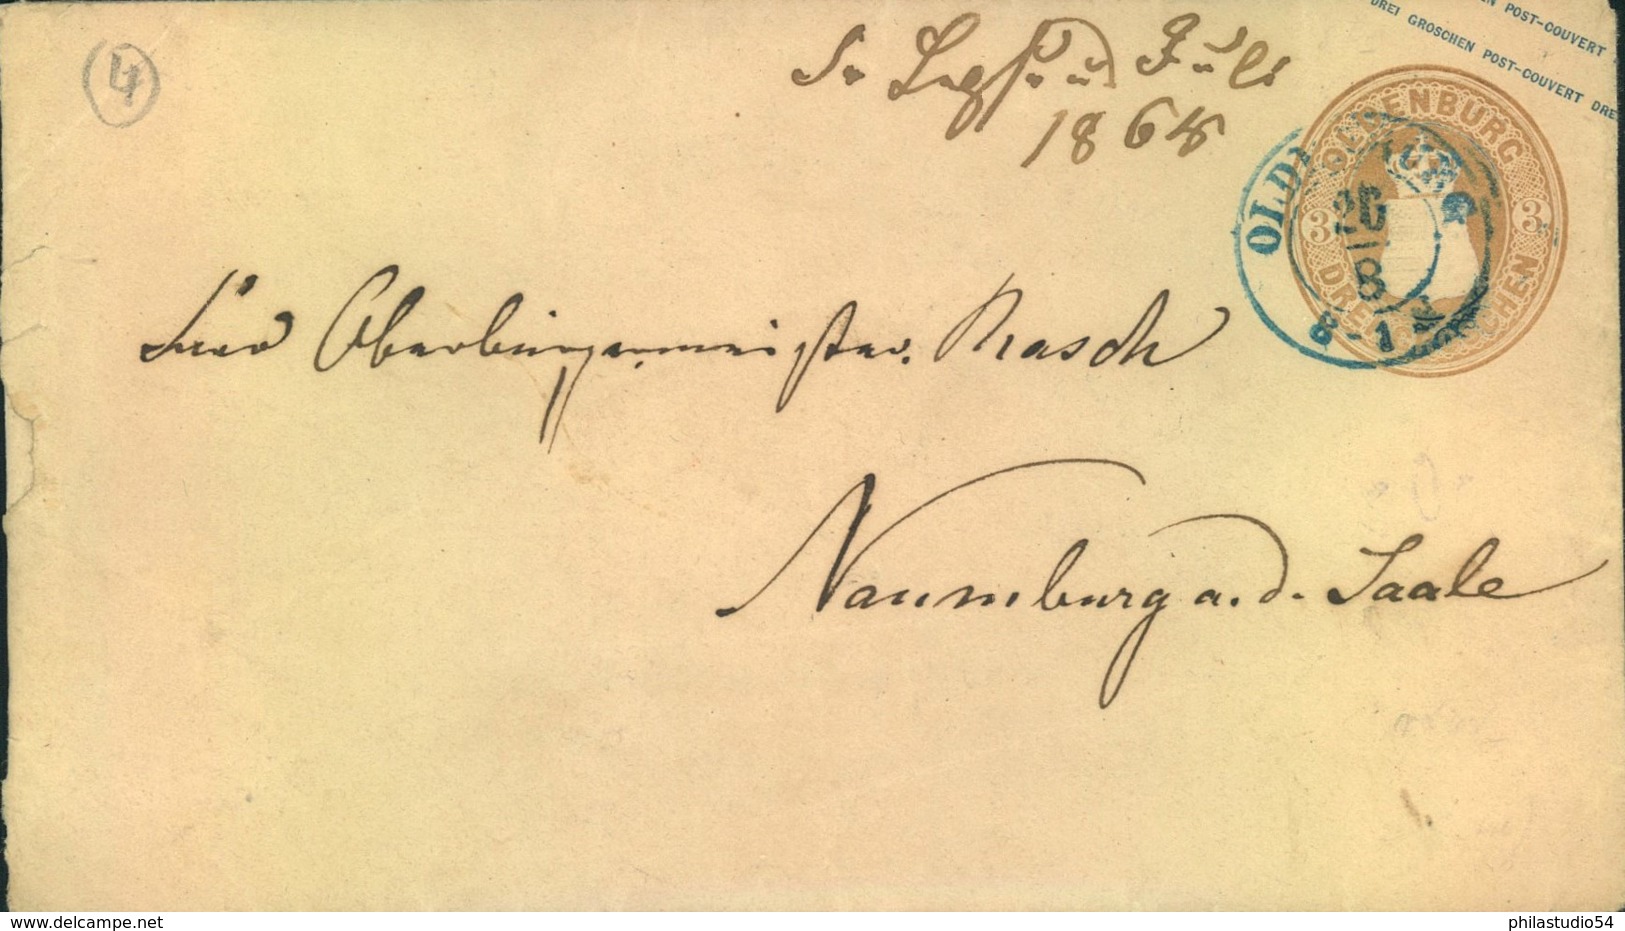 POST-COUVERT
DREI GROSCHEN POST-COUVERT DREI
4
Juli
186
OLDENBURG
3 3
DREI GROSCHEN
OLDENBURG
8
8-1
Herrn Oberbürgermeister Rasch
Naumburg a. d. Saale
www.delcampe.net
philastudio54